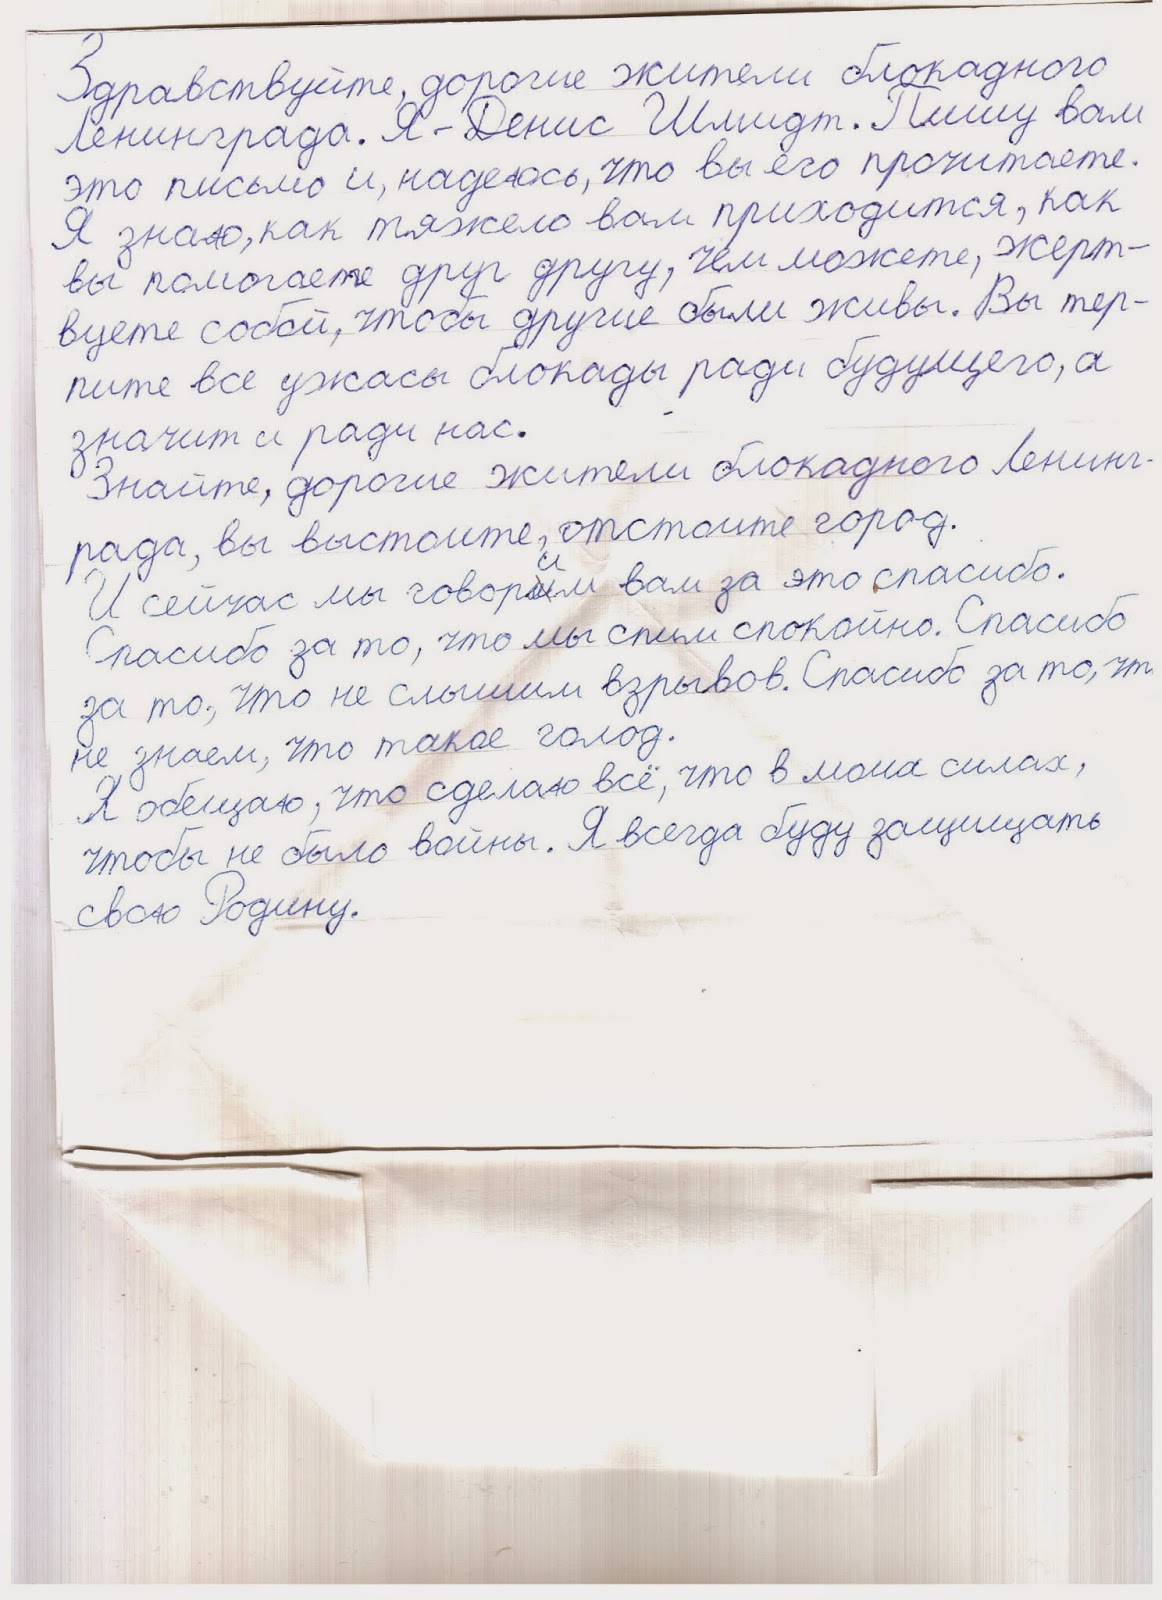 Здравствуйте, дорогие жители блокадного
Ленинграда. Я - Денис Шмидт. Пишу вам
это письмо и, надеюсь, что вы его прочитаете.
Я знаю, как тяжело вам приходится, как
вы помогаете друг другу, чем можете, жерт-
вуете собой, чтобы другие были живы. Вы тер-
пите все ужасы блокады ради будущего, а
значит и ради нас.
Знайте, дорогие жители блокадного Ленинг-
рада, вы выстоите, отстоите город.
И сейчас мы говорим вам за это спасибо.
Спасибо за то, что мы спим спокойно. Спасибо
за то, что не слышим взрывов. Спасибо за то, чт
не знаем, что такое голод.
Я обещаю, что сделаю всё, что в моих силах,
чтобы не было войны. Я всегда буду защищать
свою Родину.